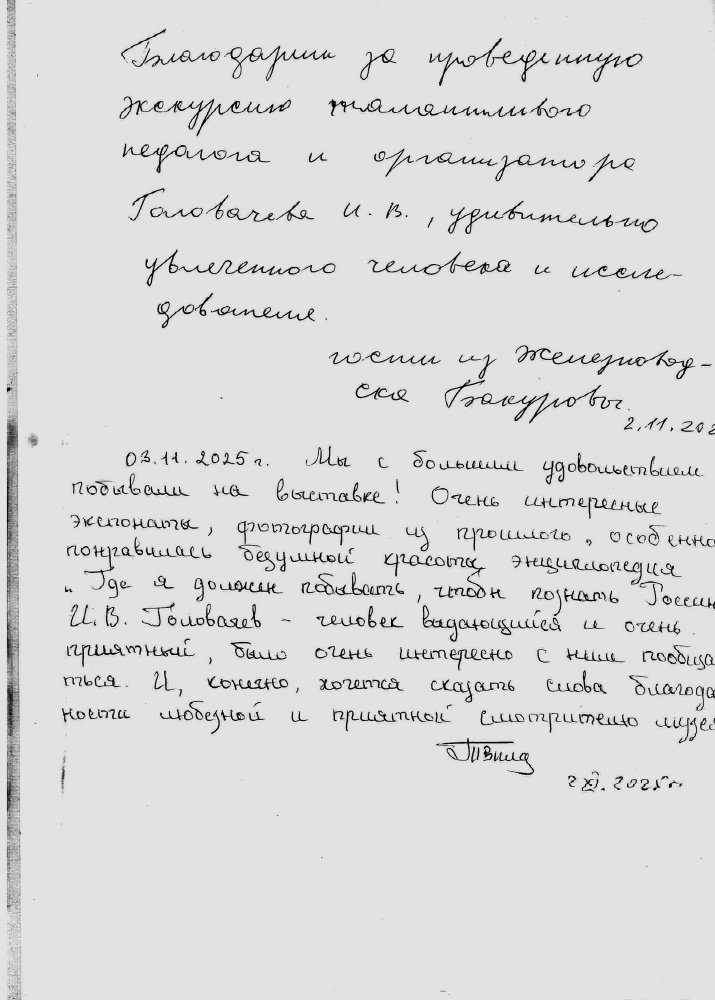 Благодарим за проведенную
экскурсию талантливого
педагога и организатора
Головачева И. В., удивительно
увлеченного человека и иссле-
дователя.
гости из Железновод-
ска Бакуровы.
2.11.202
03.11.2025г. Мы с большим удовольствием
побывали на выставке! Очень интересные
экспонаты, фотографии из прошлого, особенно
понравилась безумной красоты энциклопедия
„Где я должен побывать, чтобы познать Россию
И.В. Головачев - человек выдающийся и очень
приятный, было очень интересно с ним пообща
ться. И, конечно, хочется сказать слова благода
ности любезной и приятной смотрителю музея
2 XI. 2025г.